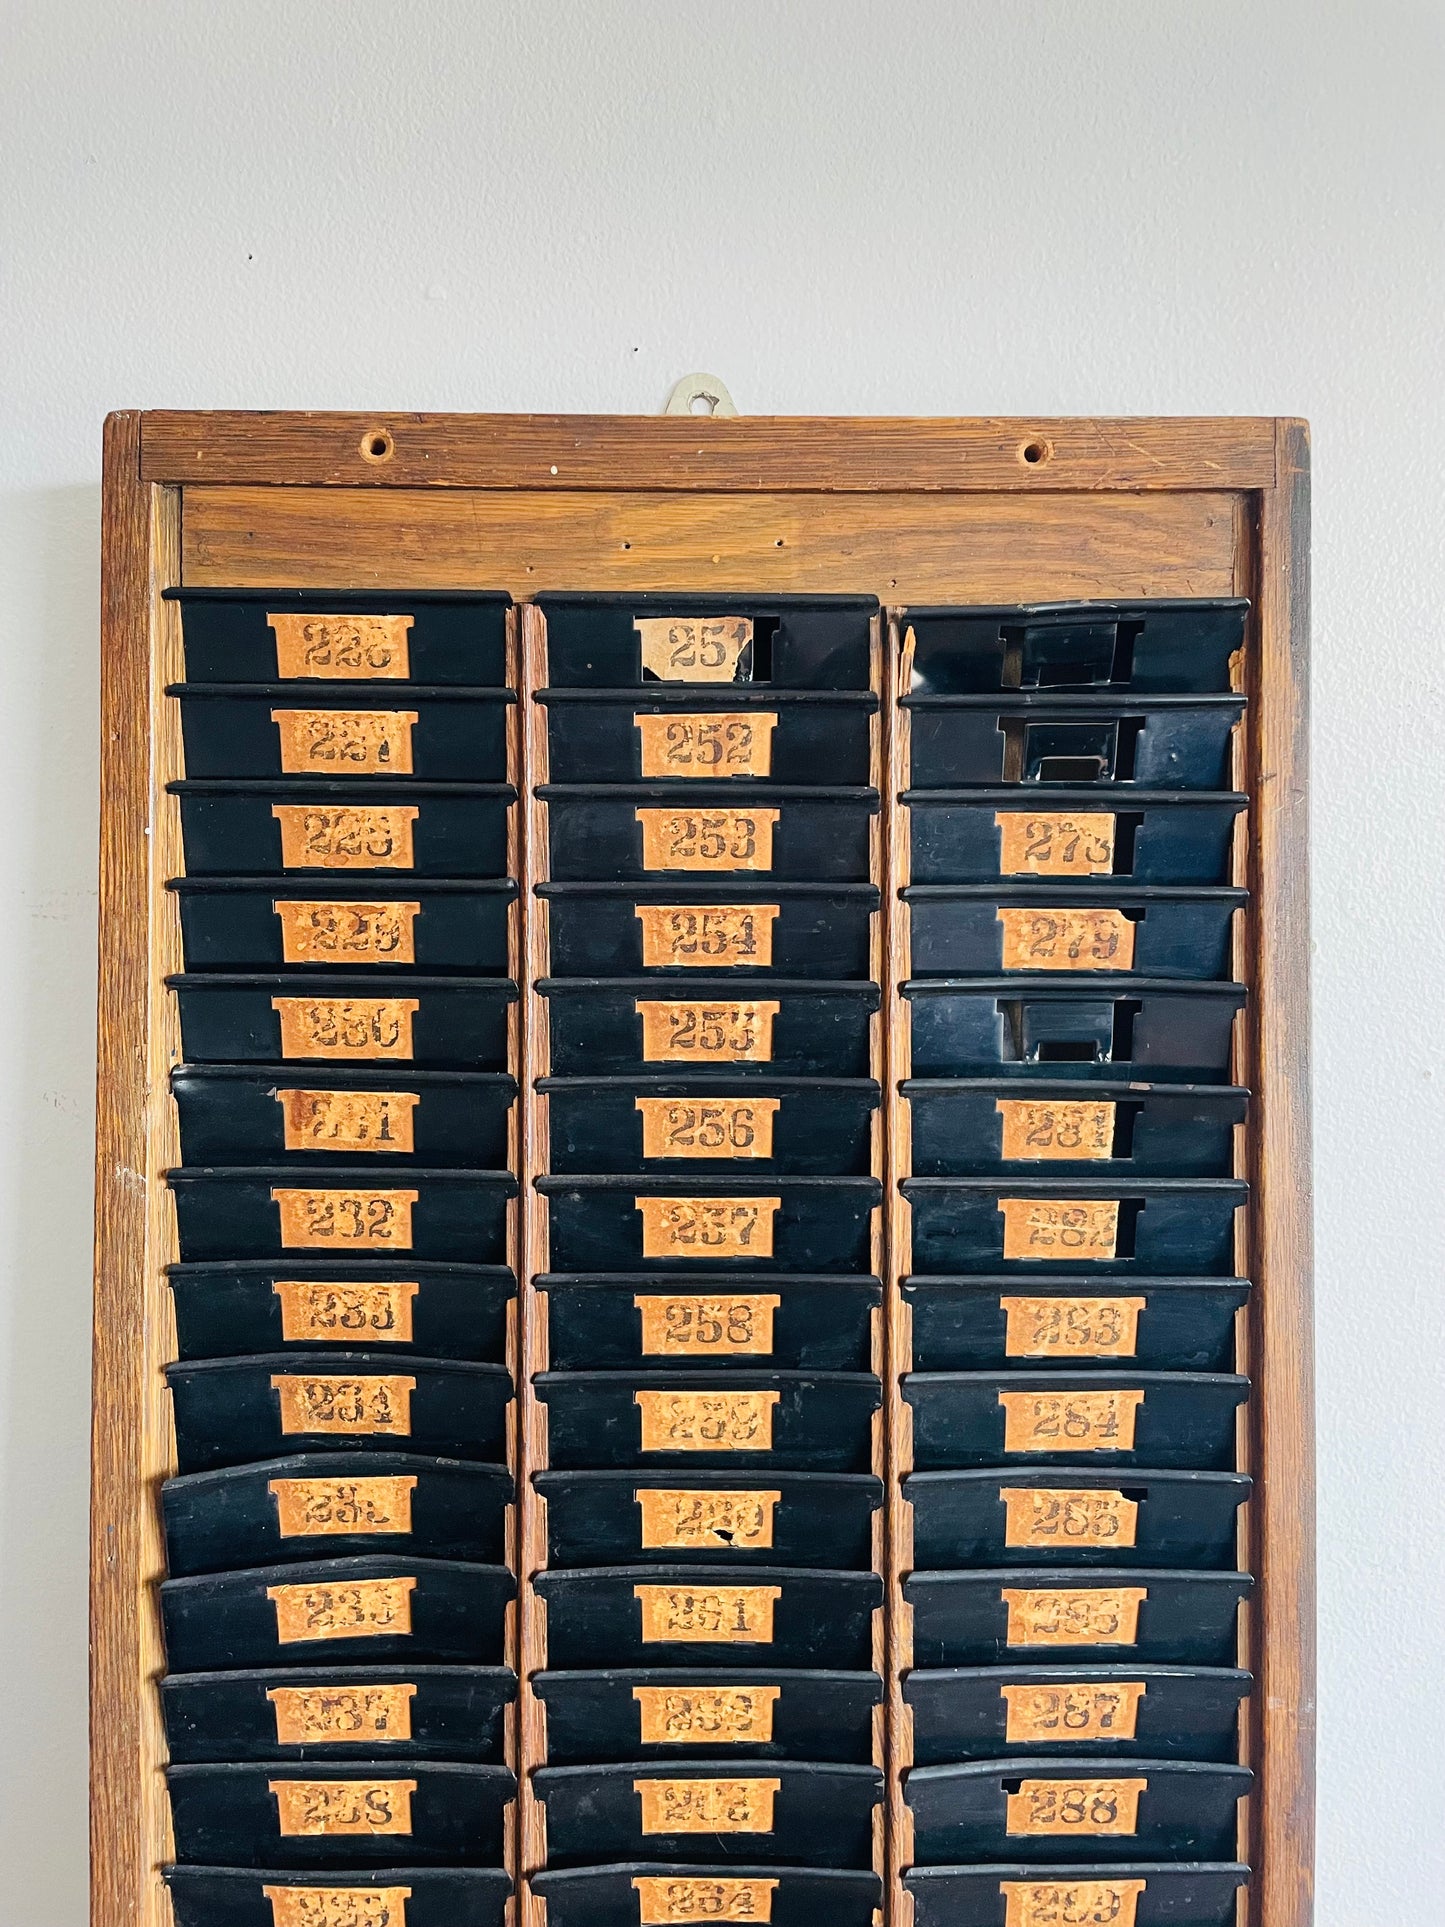 226
251
227
252
228
253
278
229
254
279
230
255
231
256
281
232
257
282
233
258
283
234
259
284
235
260
285
236
261
286
237
262
287
238
263
288
239
264
289